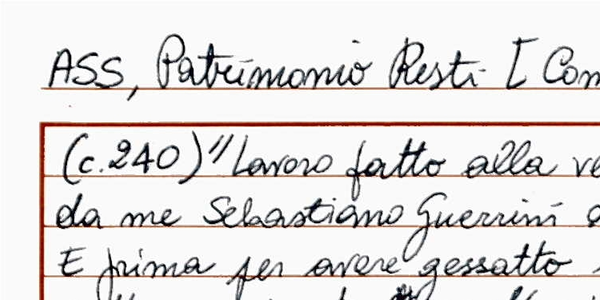 ASS, Patrimonio Resti [ Com
(c.240) "Lavoro fatto alla ve
da me Sebastiano Guerrini
E prima per avere gessatto